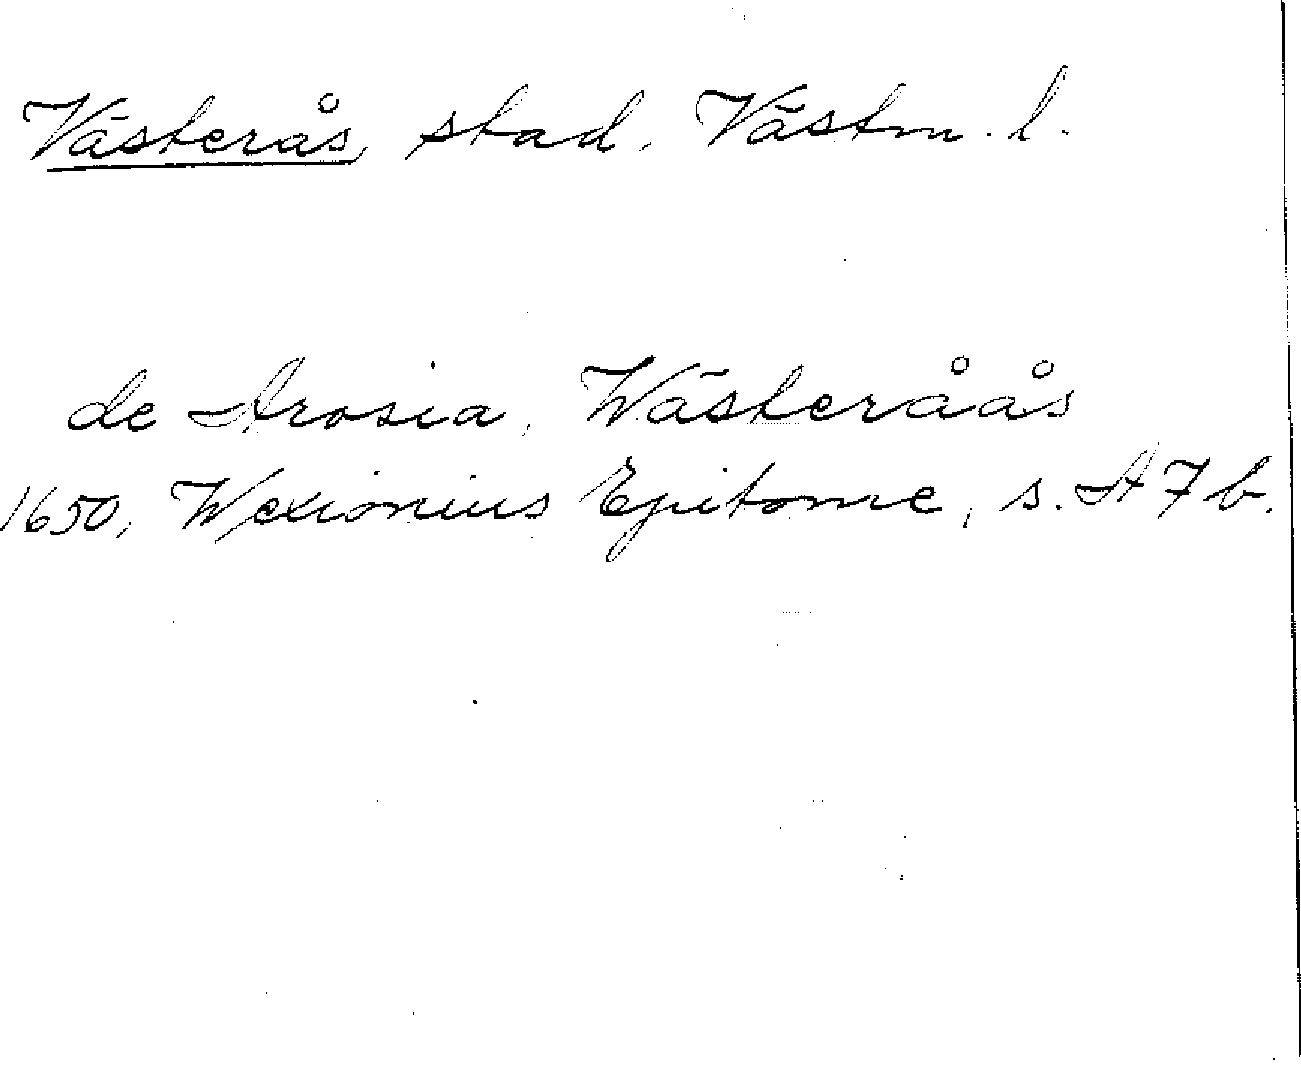 Västerås, stad, Västm. l.
de Arosia, Wästeråås
1650, Wexionius Epitome, s. A 7 b.